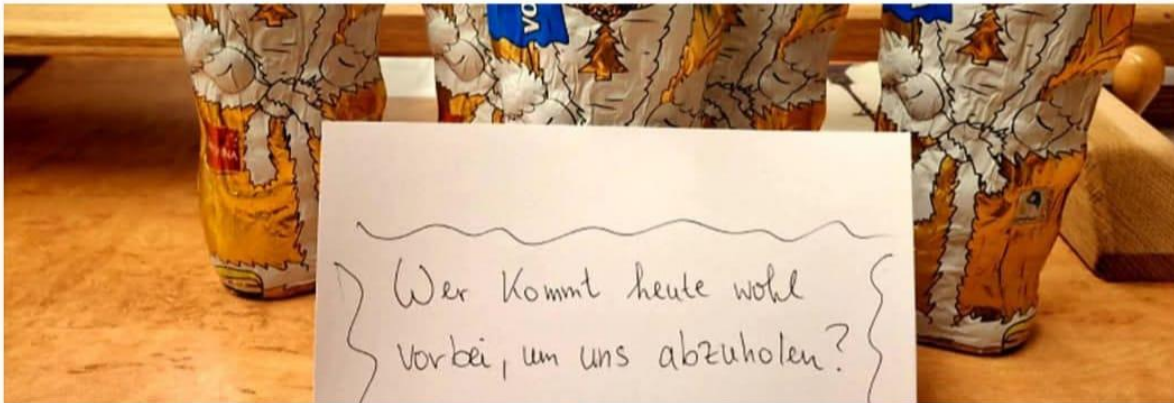 VO
Wer kommt heute wohl
vorbei, um uns abzuholen?